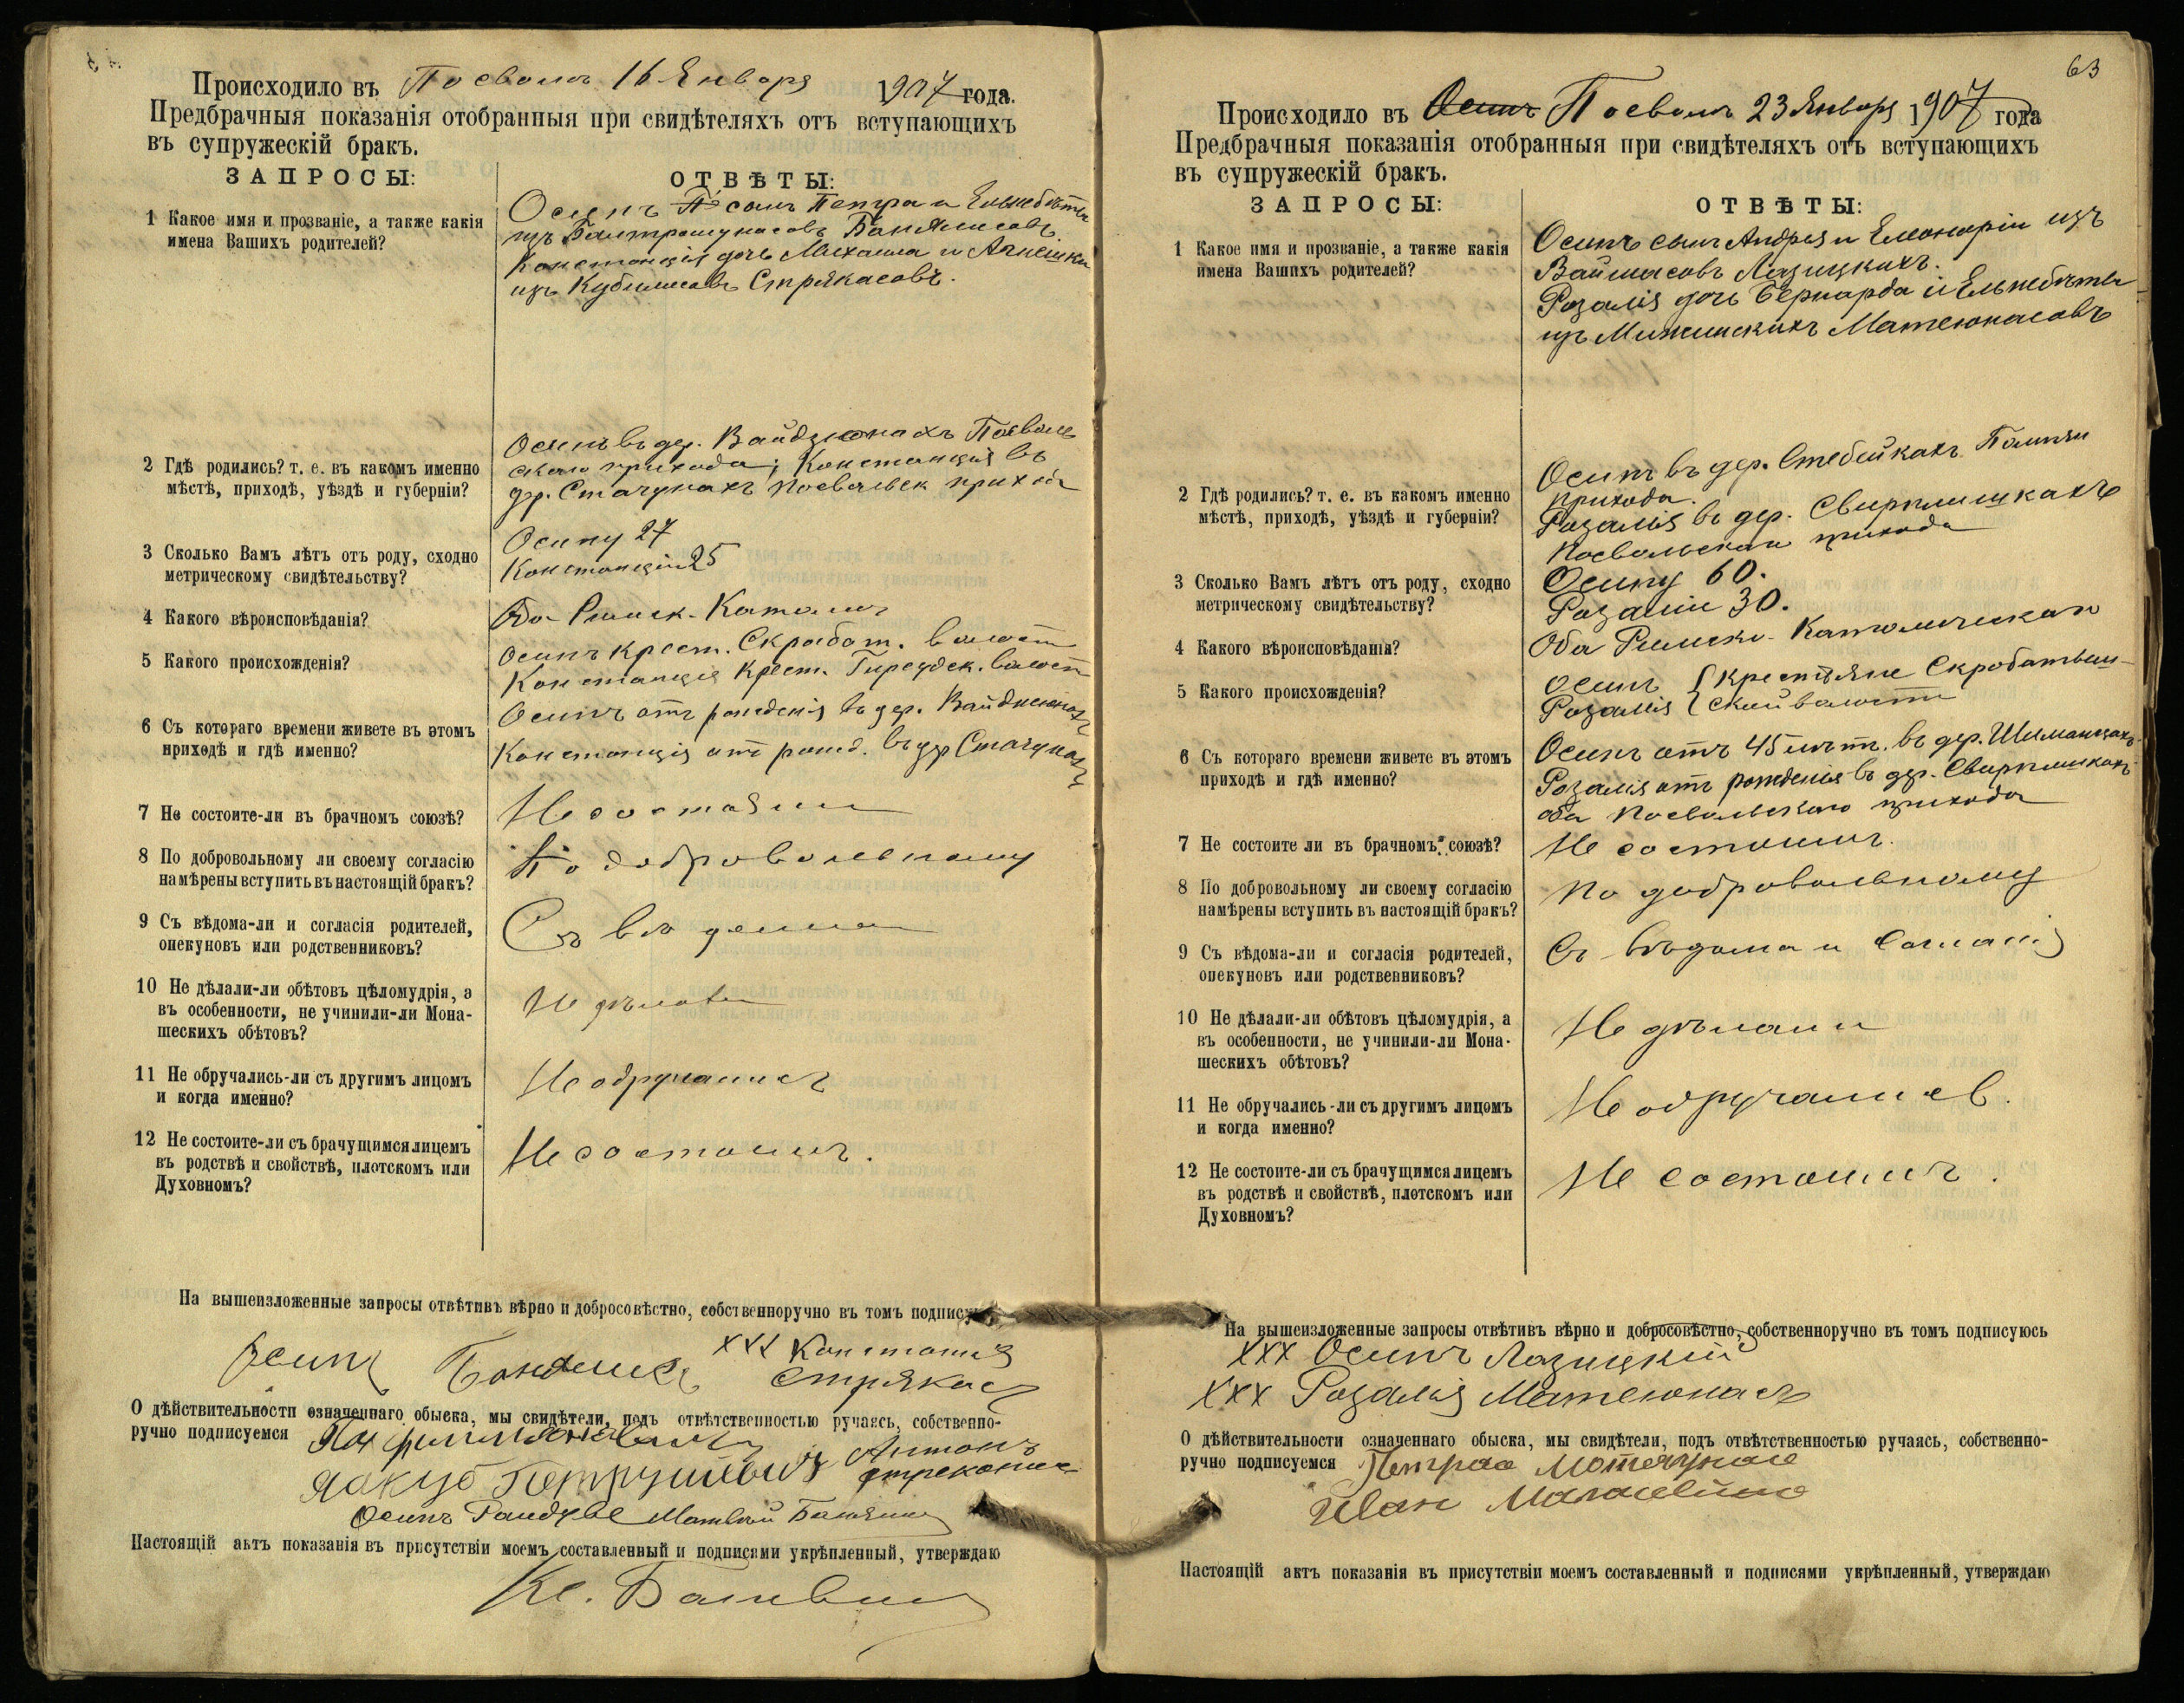 Происходило въ Посволѣ 16 Января 1907 года.
Предбрачныя показанія отобранныя при свидѣтеляхъ отъ вступающихъ
въ супружескій бракъ.
ЗАПРОСЫ:
ОТВѢТЫ:
1 Какое имя и прозваніе, а также какія
имена Вашихъ родителей?
Осипъ сынъ Петра и Ельжбѣты
изъ
Констанція дочь Михаила и Агнешки
изъ Кубилисовъ Стрякасовъ.
2 Гдѣ родились? т. е. въ какомъ именно
мѣстѣ, приходѣ, уѣздѣ и губерніи?
Осипъ въ дер. Вайдзюнахъ Посволь
скаго прихода; Констанція въ
дер. Стачунахъ Посвольск прихода
3 Сколько Вамъ лѣтъ отъ роду, сходно
метрическому свидѣтельству?
Осипу 27
Констанціи 25
4 Какого вѣроисповѣданія?
Оба Римск. Катол
5 Какого происхожденія?
Осипъ крест. Скробот. волости
Констанція крест. волости
6 Съ котораго времени живете въ этомъ
приходѣ и гдѣ именно?
Осипъ отъ рожденія въ дер. Вайдзюнахъ
Констанція отъ рожд. въ дер Стачунахъ
7 Не состоите-ли въ брачномъ союзѣ?
Не состоим
8 По добровольному ли своему согласію
намѣрены вступить въ настоящій бракъ?
По добровольному
9 Съ вѣдома-ли и согласія родителей,
опекуновъ или родственниковъ?
Съ вѣдома
10 Не дѣлали-ли обѣтовъ цѣломудрія, а
въ особенности, не учинили-ли Мона-
шескихъ обѣтовъ?
Не дѣлали
11 Не обручались-ли съ другимъ лицомъ
и когда именно?
Не обручались
12 Не состоите-ли съ брачущимся лицемъ
въ родствѣ и свойствѣ, плотскомъ или
Духовномъ?
Не состоимъ.
На вышеизложенные запросы отвѣтивъ вѣрно и добросовѣстно, собственноручно въ томъ подпису
Осипъ
ххх Констанція
Стрякасъ
О дѣйствительности означеннаго обыска, мы свидѣтели, подъ отвѣтственностью ручаясь, собственно-
ручно подписуемся
Антонъ
Якуб
Осипъ Матвей
Настоящій актъ показанія въ присутствіи моемъ составленный и подписями укрѣпленный, утверждаю
Кс.
63
Происходило въ Посволѣ 23 Января 1907 года
Предбрачныя показанія отобранныя при свидѣтеляхъ отъ вступающихъ
въ супружескій бракъ.
ЗАПРОСЫ:
ОТВѢТЫ:
1 Какое имя и прозваніе, а также какія
имена Вашихъ родителей?
Осипъ сынъ Андрея и Елеонаріи изъ
Лазицкихъ.
Розалія дочь Бернарда и Ельжбѣты
изъ Матеюнасовъ
2 Гдѣ родились? т. е. въ какомъ именно
мѣстѣ, приходѣ, уѣздѣ и губерніи?
Осипъ въ дер. Стебейкахъ
прихода.
Розалія въ дер. Свирплишкахъ
Посвольскаго прихода
3 Сколько Вамъ лѣтъ отъ роду, сходно
метрическому свидѣтельству?
Осипу 60.
Розаліи 30.
4 Какого вѣроисповѣданія?
Оба Римско-Католическаго
5 Какого происхожденія?
Осипъ { Крестьяне Скроботын-
Розалія { ской волости
6 Съ котораго времени живете въ этомъ
приходѣ и гдѣ именно?
Осипъ отъ 45 лѣтъ. въ дер. Шиманцахъ
Розалія отъ рожденія въ дер. Свирплишкахъ
оба Посвольскаго прихода
7 Не состоите ли въ брачномъ союзѣ?
Не состоимъ.
8 По добровольному ли своему согласію
намѣрены вступить въ настоящій бракъ?
По добровольному
9 Съ вѣдома-ли и согласія родителей,
опекуновъ или родственниковъ?
Съ вѣдома и согласія
10 Не дѣлали-ли обѣтовъ цѣломудрія, а
въ особенности, не учинили-ли Мона-
шескихъ обѣтовъ?
Не дѣлали
11 Не обручались-ли съ другимъ лицомъ
и когда именно?
Не обручались.
12 Не состоите-ли съ брачущимся лицемъ
въ родствѣ и свойствѣ, плотскомъ или
Духовномъ?
Не состоимъ.
На вышеизложенные запросы отвѣтивъ вѣрно и добросовѣстно, собственноручно въ томъ подписуюсь
ххх Осипъ Лазицкій
ххх Розалія Матеюнасъ
О дѣйствительности означеннаго обыска, мы свидѣтели, подъ отвѣтственностью ручаясь, собственно-
ручно подписуемся Петрас
Иван
Настоящій актъ показанія въ присутствіи моемъ составленный и подписями укрѣпленный, утверждаю